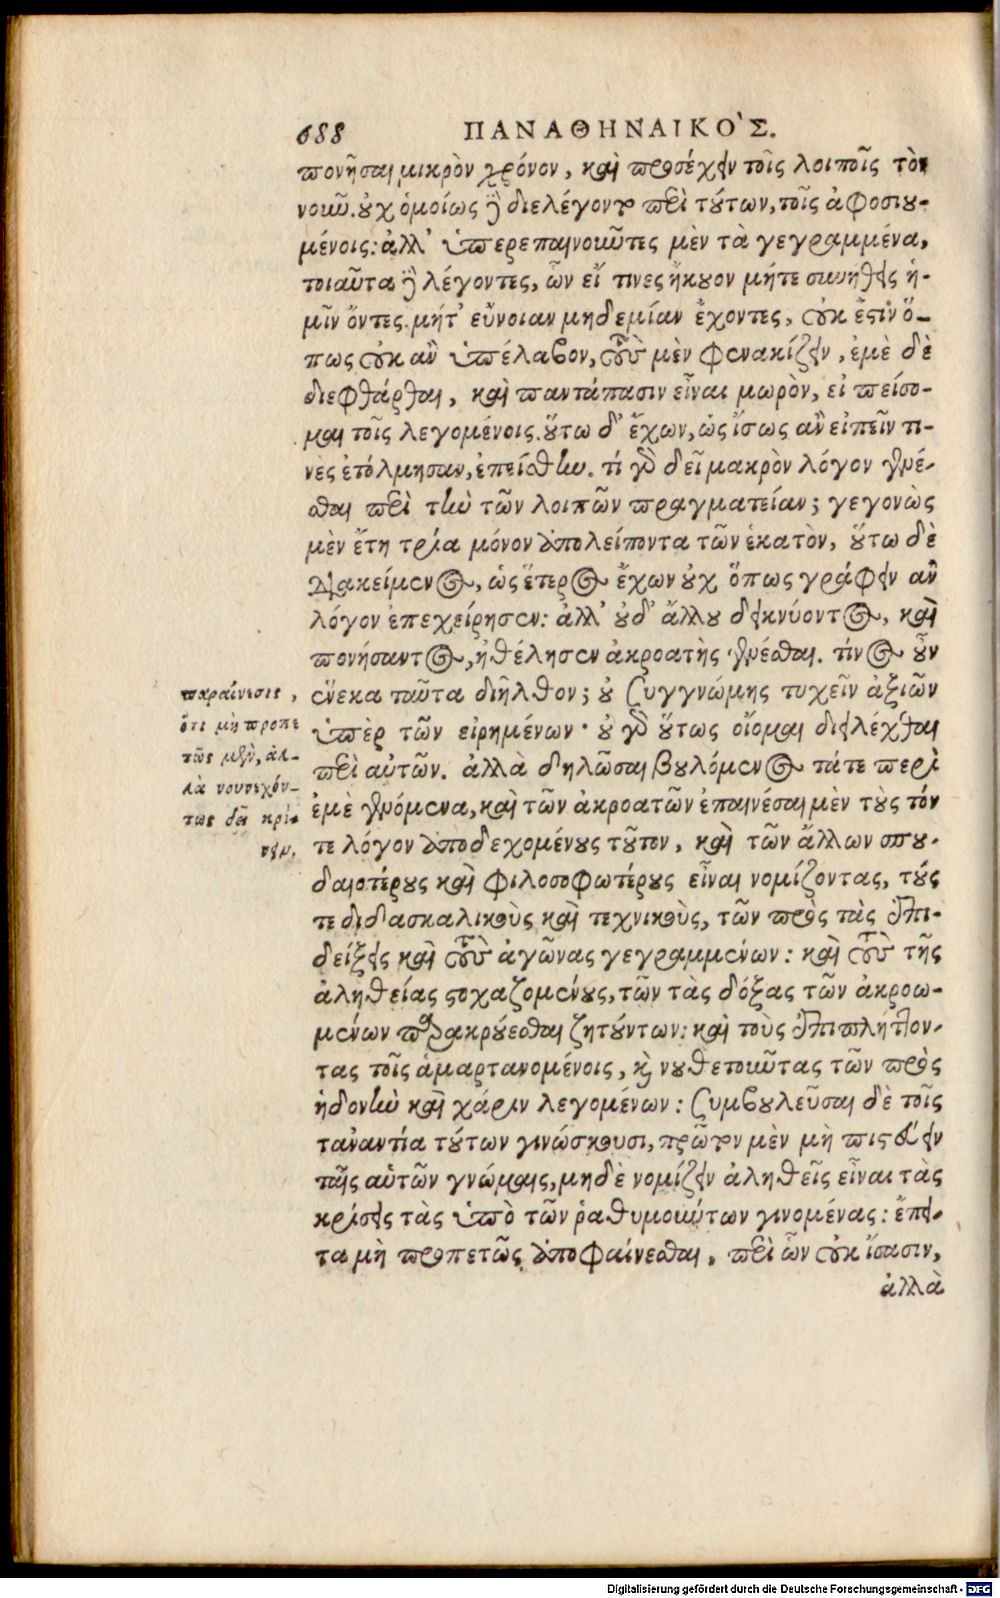 688 ΠΑΝΑΘΗΝΑΙΚΟ'Σ.
πονῆσαι μικρὸν χρόνον, καὶ προσέχειν τοῖς λοιποῖς τὸν
νοῦν. οὐχ ὁμοίως δὲ διελέγοντο περὶ τούτων, τοῖς ἀφοσιου-
μένοις: ἀλλ' ὑπερεπαινοῦντες μὲν τὰ γεγραμμένα,
τοιαῦτα δὲ λέγοντες, ὧν εἴ τινες ἤκουον μήτε συνήθεις ἡ-
μῖν ὄντες. μήτ' εὔνοιαν μηδεμίαν ἔχοντες, οὐκ ἔστιν ὅ-
πως οὐκ ἂν ὑπέλαβον, τοὺς μὲν φενακίζειν, ἐμὲ δὲ
διεφθάρθαι, καὶ παντάπασιν εἶναι μωρὸν, εἰ πείσο-
μαι τοῖς λεγομένοις. οὕτω δ' ἔχων, ὡς ἴσως ἂν εἰπεῖν τι-
νὲς ἐτόλμησαν, ἐπείσθην. τί γὰρ δεῖ μακρὸν λόγον γενέ-
σθαι περὶ τὴν τῶν λοιπῶν πραγματείαν; γεγονὼς
μὲν ἔτη τρία μόνον ἀπολείποντα τῶν ἑκατὸν, οὕτω δὲ
διακείμενος, ὡς ἕτερος ἔχων οὐχ ὅπως γράφειν ἂν
λόγον ἐπεχείρησεν: ἀλλ' οὐδ' ἄλλου δεικνύοντος, καὶ
πονήσαντος, ἠθέλησεν ἀκροατὴς γενέσθαι. τίνος οὖν
ἕνεκα ταῦτα διῆλθον; οὐ συγγνώμης τυχεῖν ἀξιῶν
ὑπὲρ τῶν εἰρημένων· οὐ γὰρ οὕτως οἴομαι διειλέχθαι
περὶ αὐτῶν. ἀλλὰ δηλῶσαι βουλόμενος τάτε περὶ
ἐμὲ γενόμενα, καὶ τῶν ἀκροατῶν ἐπαινέσαι μὲν τοὺς τόν
τε λόγον ἀποδεχομένους τοῦτον, καὶ τῶν ἄλλων σπου-
δαιοτέρους καὶ φιλοσοφωτέρους εἶναι νομίζοντας, τούς
τε διδασκαλικοὺς καὶ τεχνικοὺς, τῶν πρὸς τὰς ἐπι-
δείξεις καὶ τοὺς ἀγῶνας γεγραμμένων: καὶ τοὺς τῆς
ἀληθείας στοχαζομένους, τῶν τὰς δόξας τῶν ἀκροω-
μένων παρακρούεσθαι ζητούντων: καὶ τοὺς ἐπιπλήττον-
τας τοῖς ἁμαρτανομένοις, καὶ νουθετοῦντας τῶν πρὸς
ἡδονὴν καὶ χάριν λεγομένων: συμβουλεῦσαι δὲ τοῖς
τἀναντία τούτων γινώσκουσι, πρῶτον μὲν μὴ πιστεύειν
ταῖς αὑτῶν γνώμαις, μηδὲ νομίζειν ἀληθεῖς εἶναι τὰς
κρίσεις τὰς ὑπὸ τῶν ῥαθυμούντων γινομένας: ἔπει-
τα μὴ προπετῶς ἀποφαίνεσθαι, περὶ ὧν οὐκ ἴσασιν,
ἀλλὰ
παραίνεσις,
ὅτι μὴ προπε
τῶς μὲν, ἀλ-
λὰ νουνεχόν-
τως δεῖ κρί-
νειν.
Digitalisierung gefördert durch die Deutsche Forschungsgemeinschaft - DFG